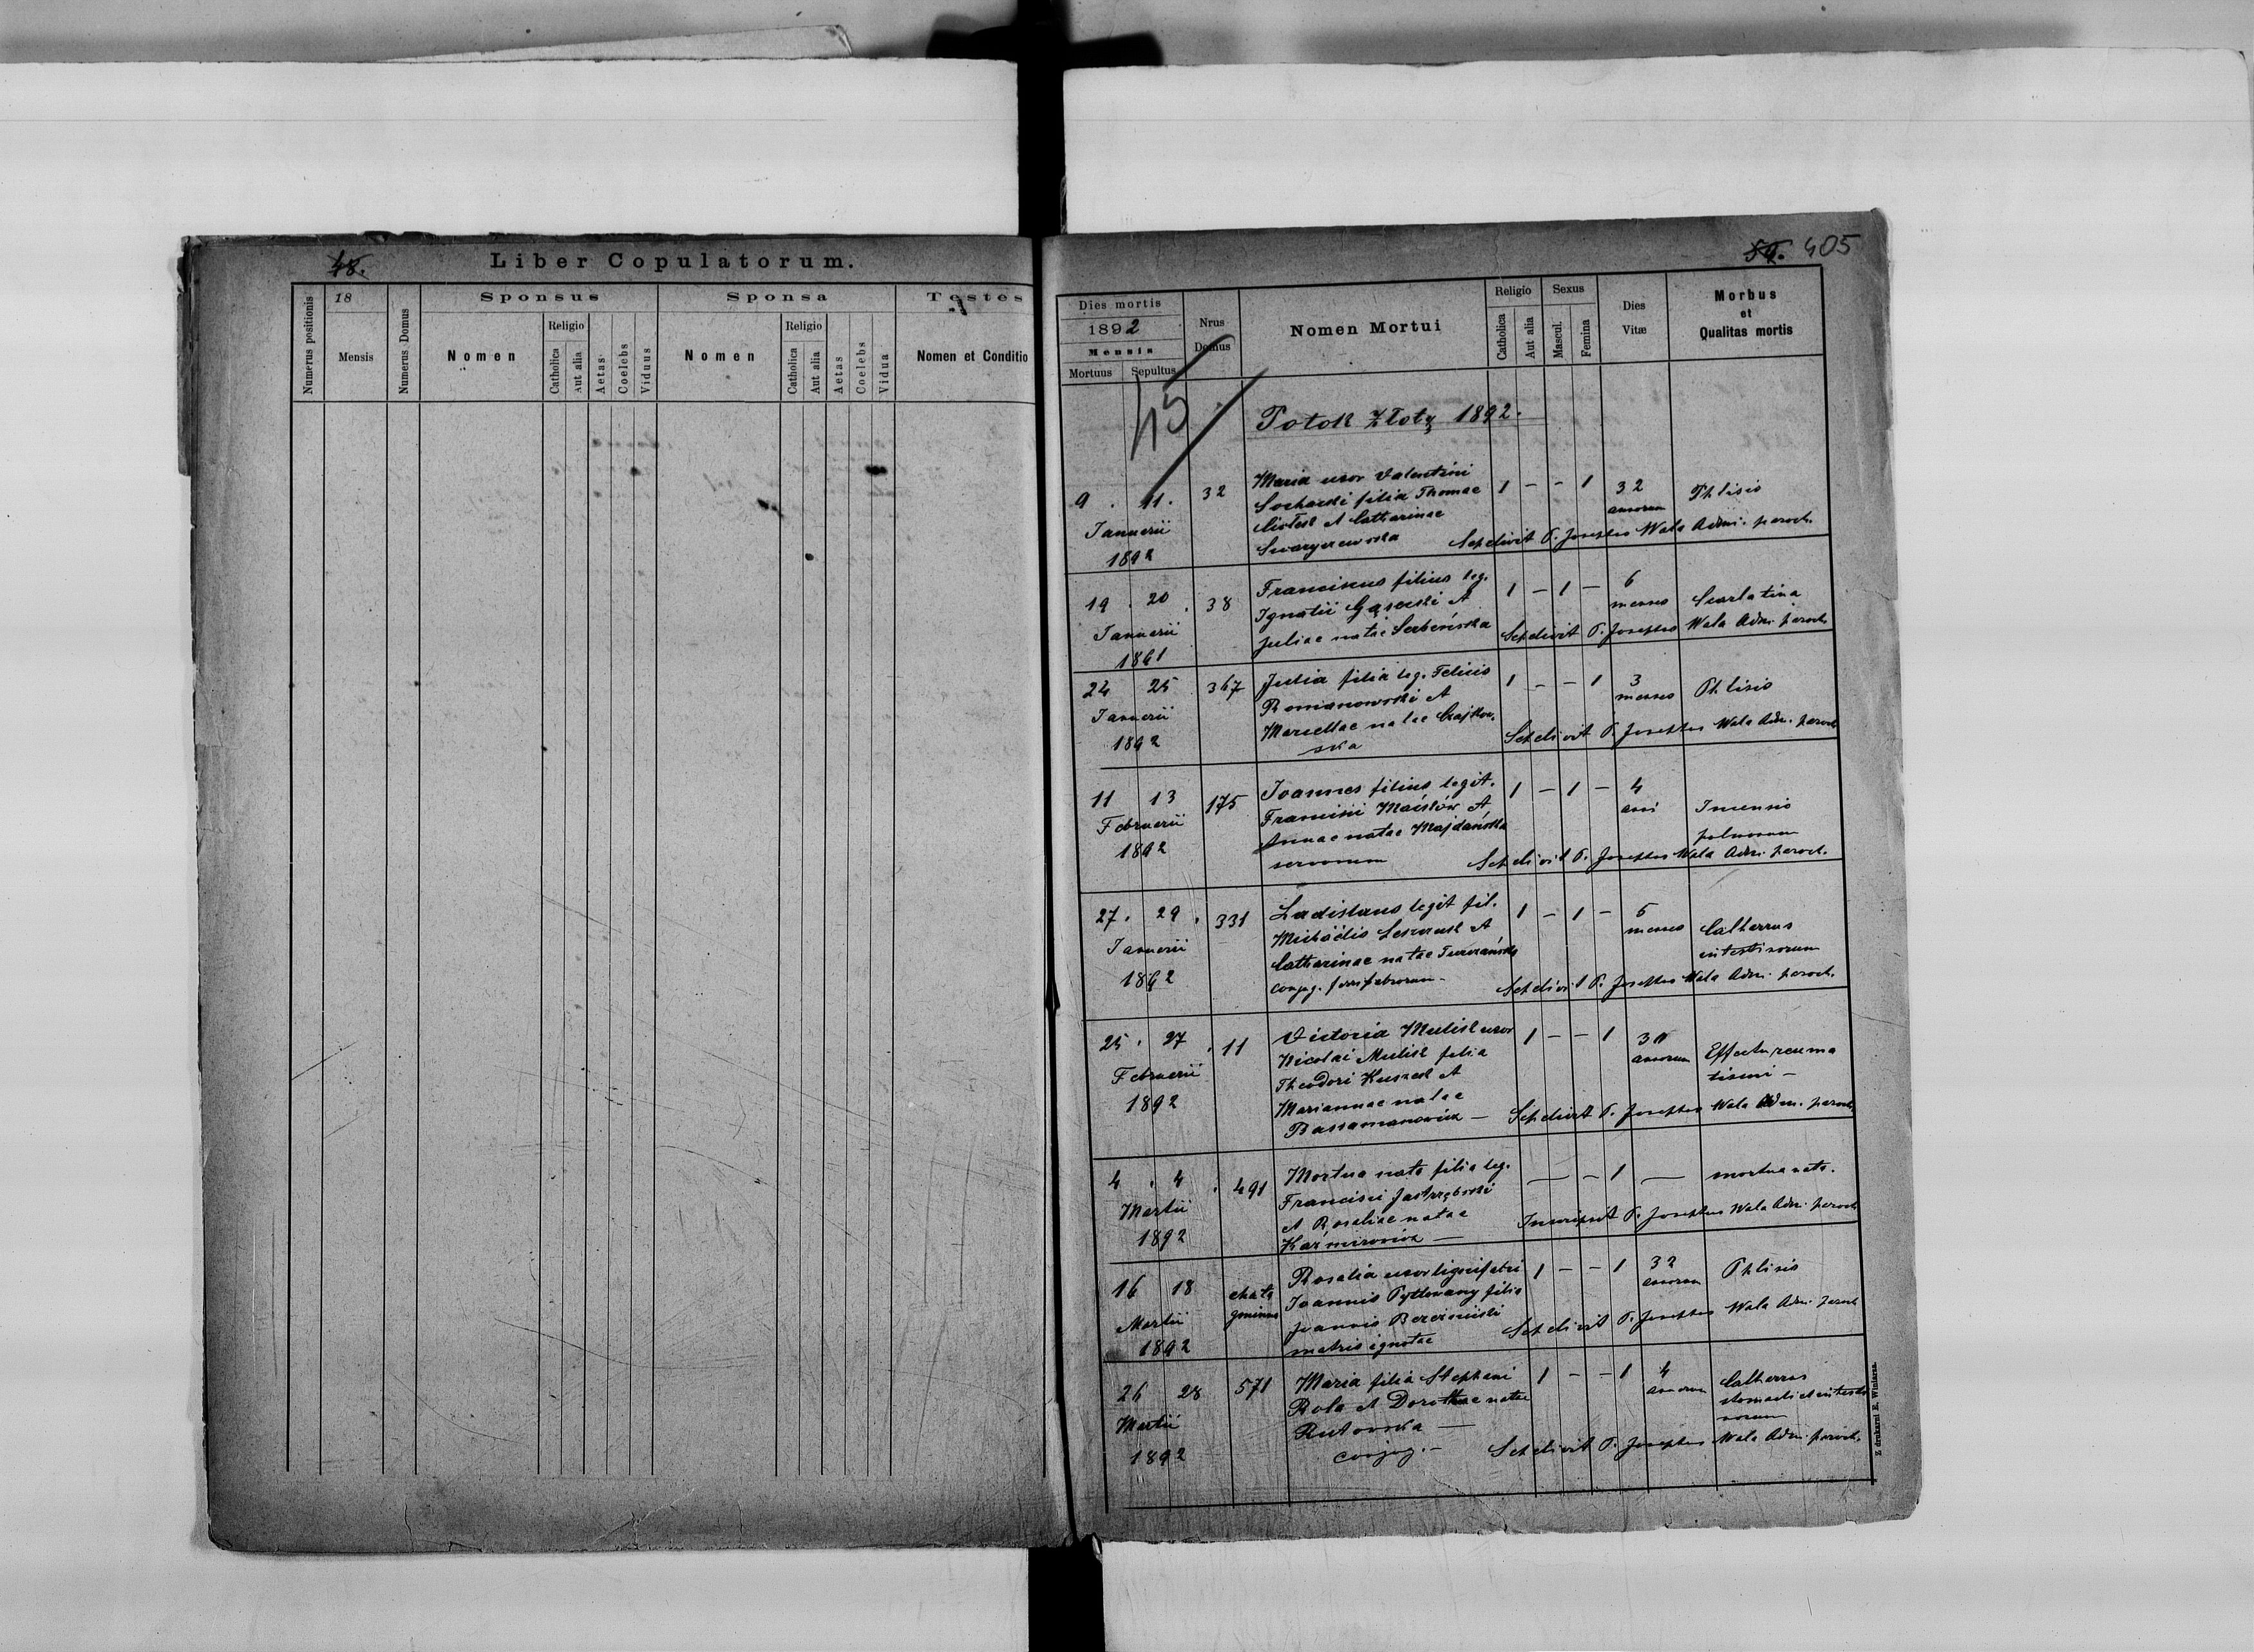 48.
Liber Copulatorum.
Numerus positionis
18
Mensis
Numerus Domus
Sponsus
Nomen
Religio
Catholica
Aut alia
Aetas
Coelebs
Viduus
Sponsa
Nomen
Religio
Catholica
Aut alia
Aetas
Coelebs
Vidua
Testes
Nomen et Conditio
59. 405
Dies mortis
1892
Mensis
Mortuus
Sepultus
Nrus
Domus
Nomen Mortui
Religio
Catholica
Aut alia
Sexus
Mascul.
Femina
Dies
Vitæ
Morbus
et
Qualitas mortis
Potok Złoty 1892.
9 . 11. 32
Januarii
1892
Maria uxor Valentini
filia Thomae
et Catharinae
1 - - 1
32
annorum
Phtisis
Sepelivit P. Josephus Wala Admi. paroch.
19 . 20 . 38
Januarii
1891
Franciscus filius leg.
Ignatii Gąsecki et
Juliae natae
1 - 1 -
6
menses
Scarlatina
Sepelivit P. Josephus Wala Adm. paroch.
24 25 367
Januarii
1892
Julia filia leg. Felicis
Romanowski et
Marcellae natae Czajkow-
ska
1 - - 1
3
menses
Phtisis
Sepelivit P. Josephus Wala Adm. paroch
11 13 175
Februarii
1892
Joannes filius legit.
Francisci et
Annae natae Majdańska
servorum
1 - 1 -
4
anni
Incensio
pulmonum
Sepelivit P. Josephus Wala Adm. paroch.
27. 29. 331
Januarii
1892
Ladislaus legit fil.
Michaëlis et
Catharinae natae
conjug.
1 - 1 -
5
menses
Catharrus
intestinorum
Sepelivit P. Josephus Wala Adm. paroch.
25 . 27 . 11
Februarii
1892
Victoria uxor
Nicolai filia
Theodori et
Mariannae natae
1 - - 1
annorum
Effectu reuma
tismi -
Sepelivit P. Josephus Wala Adm. paroch.
4 . 4 . 491
Martii
1892
Mortua nata filia leg.
Francisci Jastrzębski
et Rosaliae natae
— - 1 —
mortua nata.
Inscripsit P. Josephus Wala Adm. paroch
16 18
Martii
1892
Rosalia uxor lignifabri
Joannis filia
Joannis
matris ignotae
1 - - 1
32
annorum
Phtisis
Sepelivit P. Josephus Wala Adm. paroch
26 28 571
Martii
1892
Maria filia Stephani
Rola et Dorotheae natae
Rutowska —
conjug. -
1 - - 1
4
annorum
Catharrus
stomachi et intesti
norum
Sepelivit P. Josephus Wala Adm. paroch.
Z drukarni E. Winiarza.